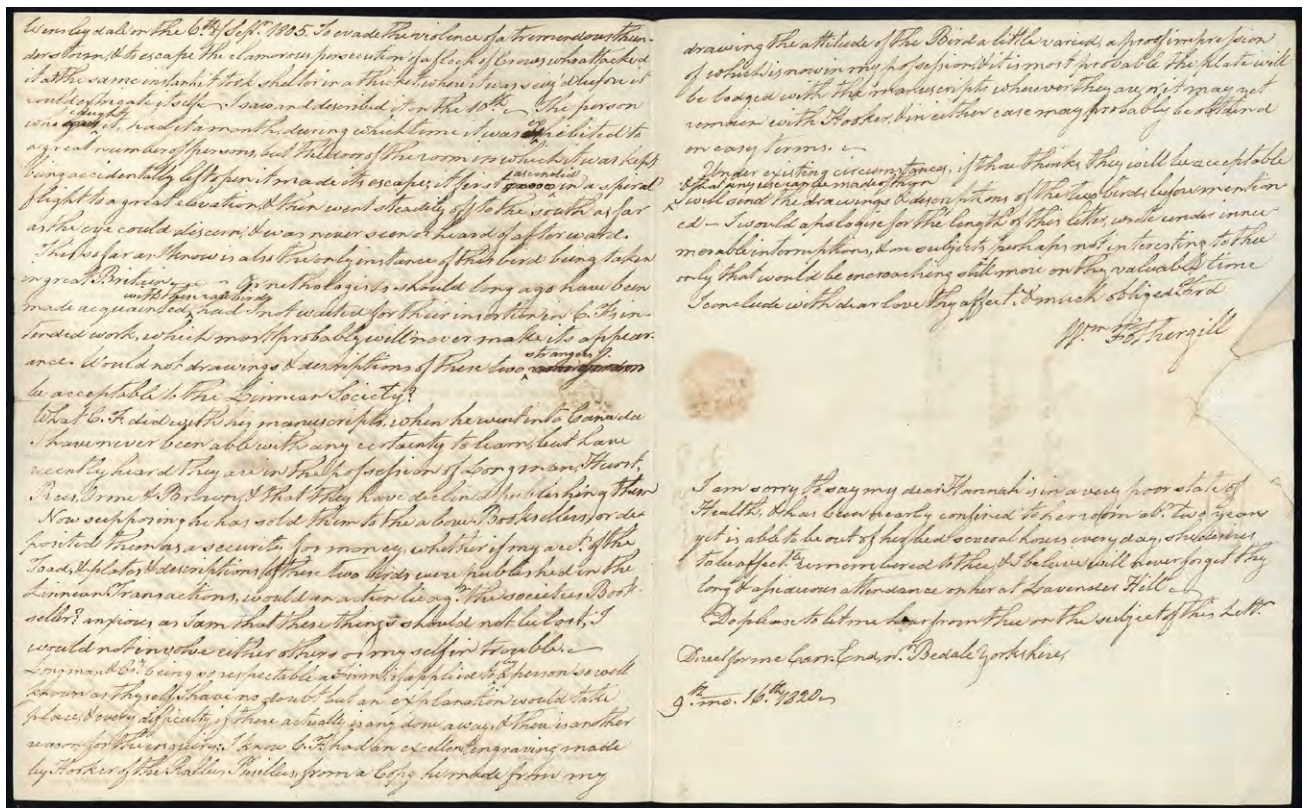 Wensleydale on the 6th of Septr. 1805. To evade the violence of a tremendous thun-
derstorm, & to escape the clamorous persecution of a flock of Crows who attack'd
it at the same instant it took shelter in a thicket where it was seiz'd before it
could extricate itself — I saw and described it on the 10th — The person
who caught it, had it a month, during which time it was exhibited to
a great number of persons, but the door of the room in which it was kept
being accidentally left open it made its escape; it first ascended in a spiral
flight to a great elevation, & then went steadily off to the south as far
as the eye could discern, & was never seen or heard of afterward.
This so far as I know is also the only instance of this bird being taken
in great Britain — Ornithologists should long ago have been
made acquainted with these rare birds had I not waited for their insertion in C. F's in-
tended work, which most probably will never make its appear-
ance. Would not drawings & descriptions of these two strangers
be acceptable to the Linnean Society?
What C. F. did with his manuscripts, when he went into Canada
I have never been able with any certainty to learn, but have
recently heard they are in the possession of Longman, Hurst,
Rees, Orme & Brown, & that they have declined publishing them
Now supposing he has sold them to the above Booksellers, or de-
posited them as a security for money, whether if my acct. of the
Toad, & plates & descriptions of these two birds were published in the
Linnean Transactions, would an action lie agt. the societies Book-
seller? anxious as I am that these things should not be lost, I
would not involve either others or myself in trouble. —
Longman & Co. being so respectable a Firm, if applied to by a person so well
known as thyself I have no doubt but an explanation would take
place, & every difficulty if there actually is any done away, & there is another
reason for this enquiry; I know C. F. had an excellent engraving made
by Hooker of the Rallus Pusillus, from a Copy he made from my
drawing the attitude of the Bird a little varied, a proof impression
of which is now in my possession, & it is most probable the plate will
be lodged with the manuscripts wherever they are, or it may yet
remain with Hooker, & in either case may probably be obtained
on easy terms. —
Under existing circumstances, if thou thinks they will be acceptable
& that any use can be made of them
I will send the drawings & descriptions of the two birds before mention
ed — I would apologise for the length of this letter, wrote under innu-
merable interruptions, & on subjects, perhaps not interesting to thee
only that would be encroaching still more on thy valuable time
I conclude with dear love thy affect. & much obliged Frd
Wm. Fothergill
I am sorry to say my dear Hannah is in a very poor state of
Health, & has been nearly confined to her room abt. two years
yet is able to be out of her bed several hours every day, she desires
to be affectly. remembered to thee, & I believe will never forget thy
long & assiduous attendance on her at Lavender Hill —
Do please to let me hear from thee on the subject of this Lettr.
Direct for me Carr End, nr. Bedale Yorkshire,
9th. mo. 16th. 1820